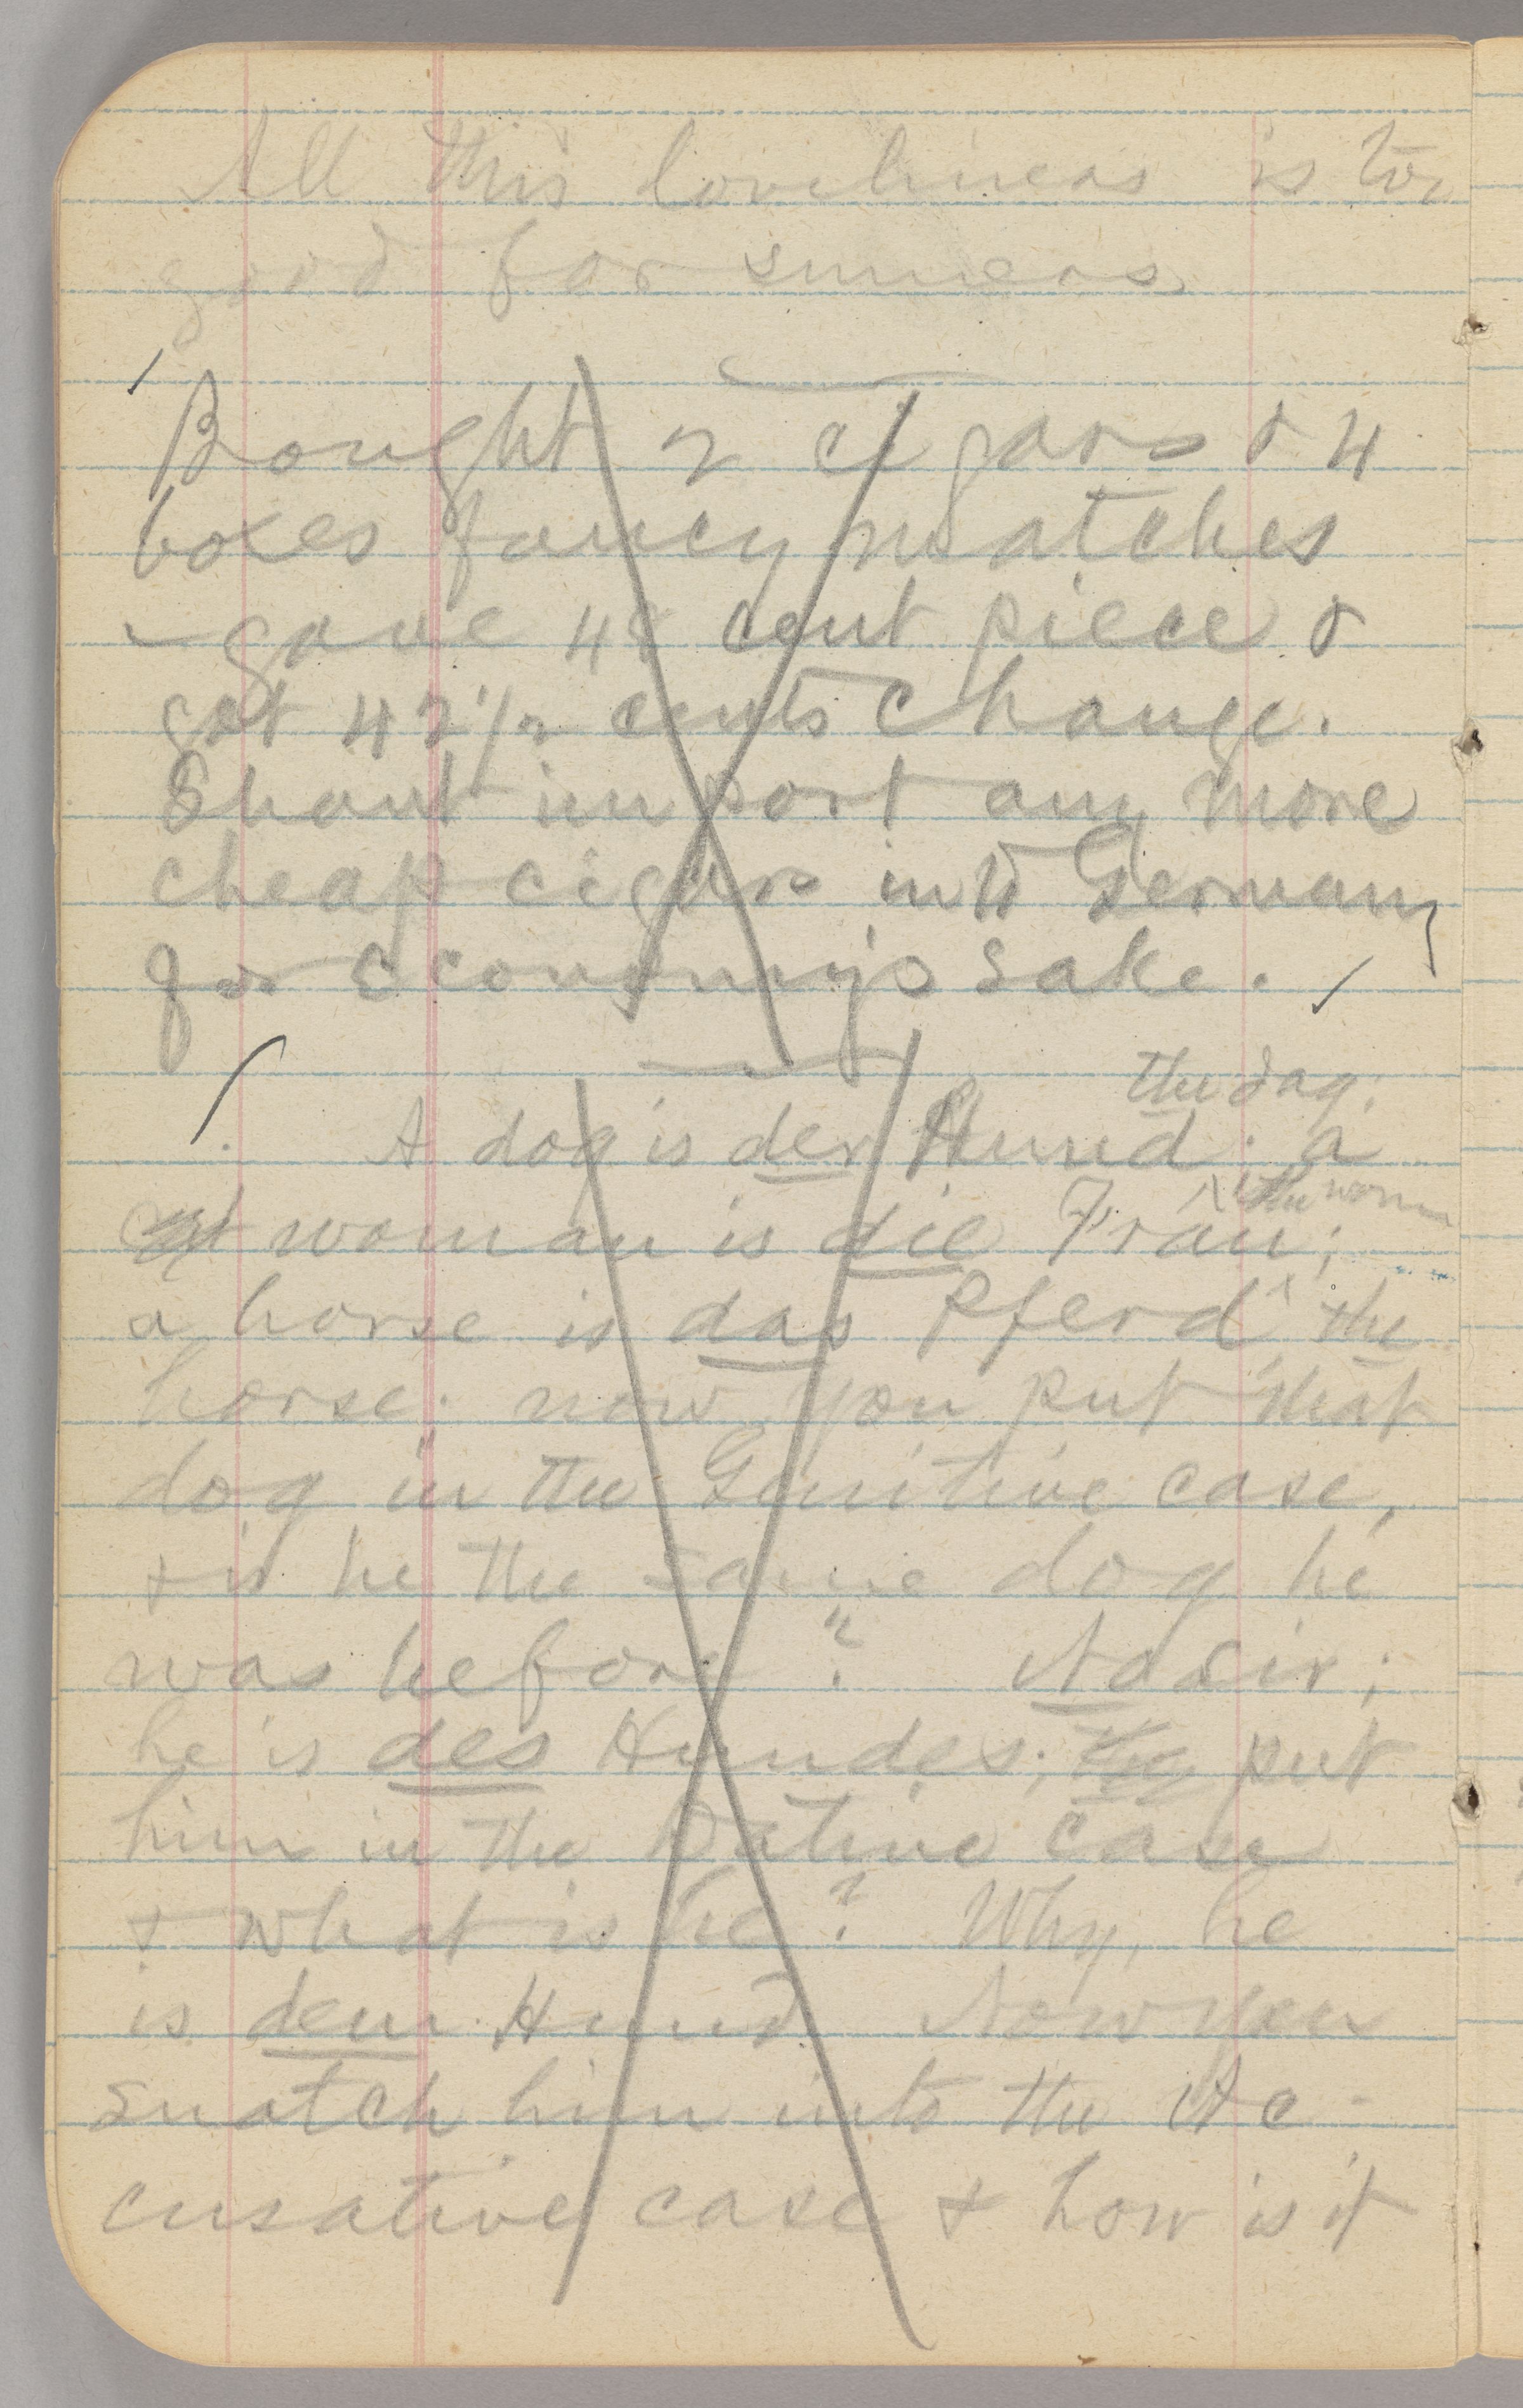 All this loveliness is too
good for sinners.
Bought 2 cigars & 4
boxes fancy matches
— gave 48 cent piece &
got 42 1/2 cents change.
Shant import any more
cheap cigars into Germany
for economy's sake.
the dog;
A dog is der Hund; a
the woman
woman is die Frau;
a horse is das Pferd, the
horse; now you put that
dog in the Genitive case,
& is he the same dog he
was before? No sir;
he is des Hundes; put
him in the Dative case
& what is he? Why, he
is dem Hund. Now you
snatch him into the Ac-
cusative case & how is it